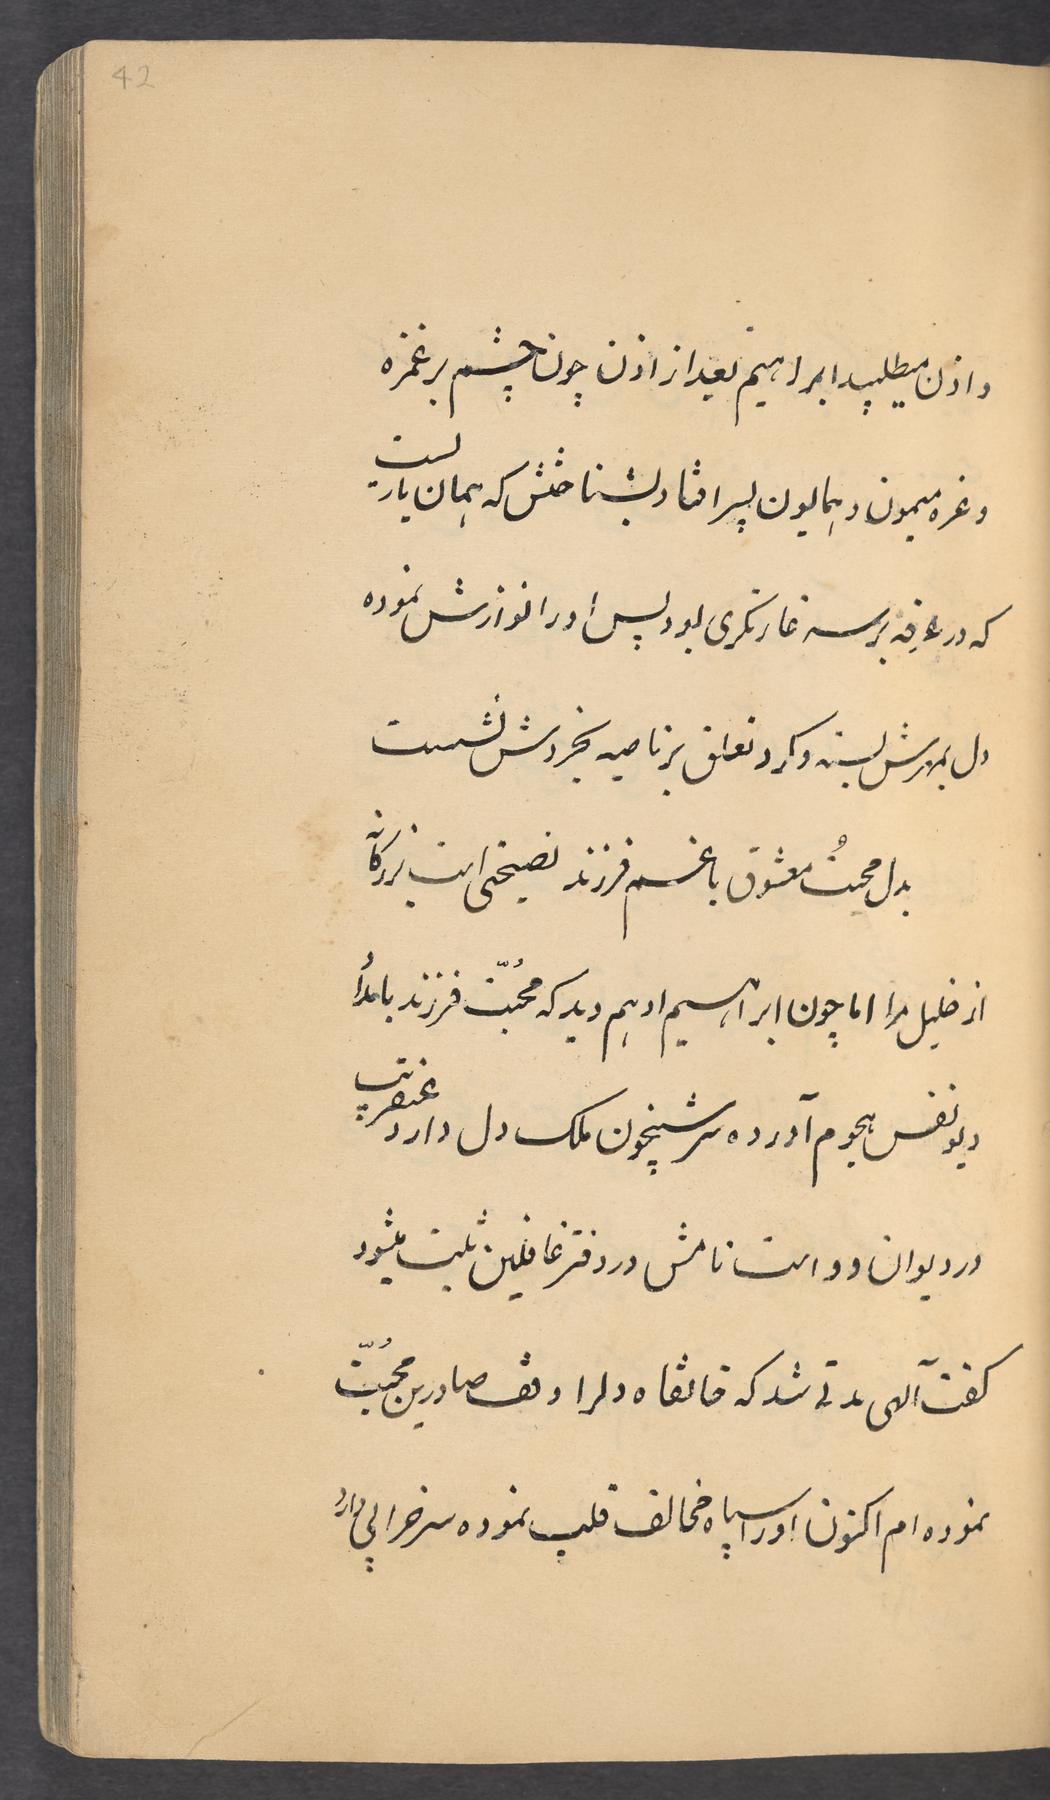 42
و اذن میطلبید ابراهیم بعد از اذن چون چشم بر غمزه
و غره میمون و همایون پسر افتاد بشناختش که همان یاریست
که در عرفه بر سه غارتگری بود پس او را نوازش نموده
دل بمهرش بسته و کرد تعلق بر ناصیه بخردش نشست
بدل محبت معشوق با غم فرزند نصیحتی است بزرگانه
از خلیل مرا اما چون ابراهیم ادهم دید که محبت فرزند بامداد
دیو نفس هجوم آورده سر شبیخون ملک دل دارد عنقریب
در دیوان وداست نامش در دفتر غافلین ثبت میشود
گفت آلهی مدتی شد که خانقاه دلرا وقف صادرین محبت
نموده ام اکنون او را سپاه مخالف قلب نموده سر خرابی دارد